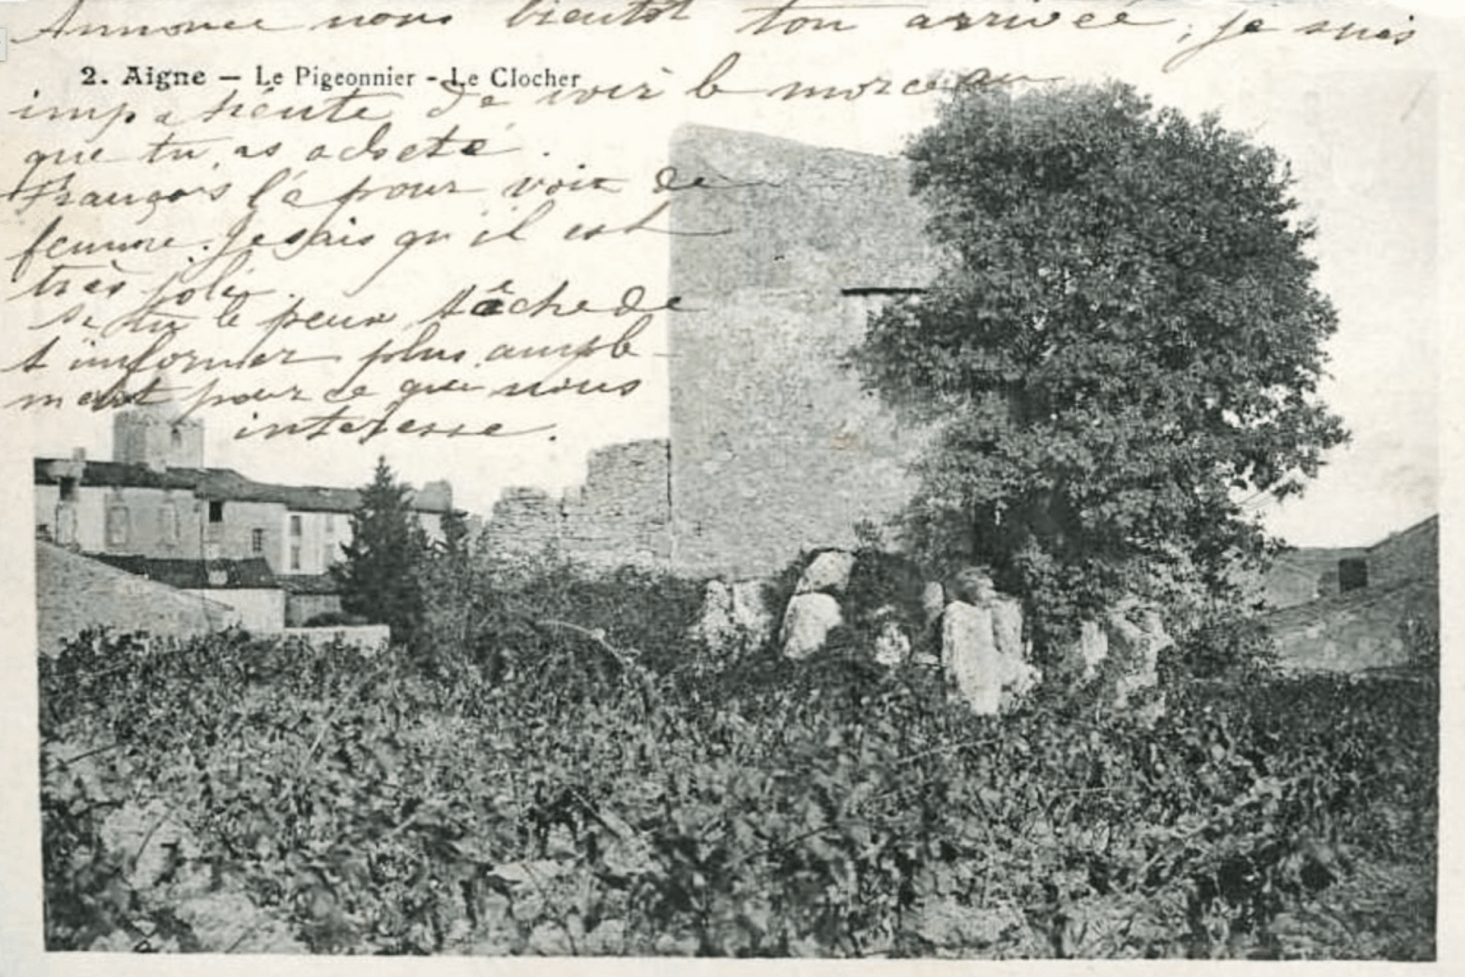 Annonce nous bientot ton arrivée, je suis
2. Aigne — Le Pigeonnier - Le Clocher
impasiente de voir le morceau
que tu as acheté.
François l'a pour voir de
femme. Je sais qu'il est
très joli.
Si tu le peux tâche de
t'informer plus ample-
ment pour ce que nous
intéresse.